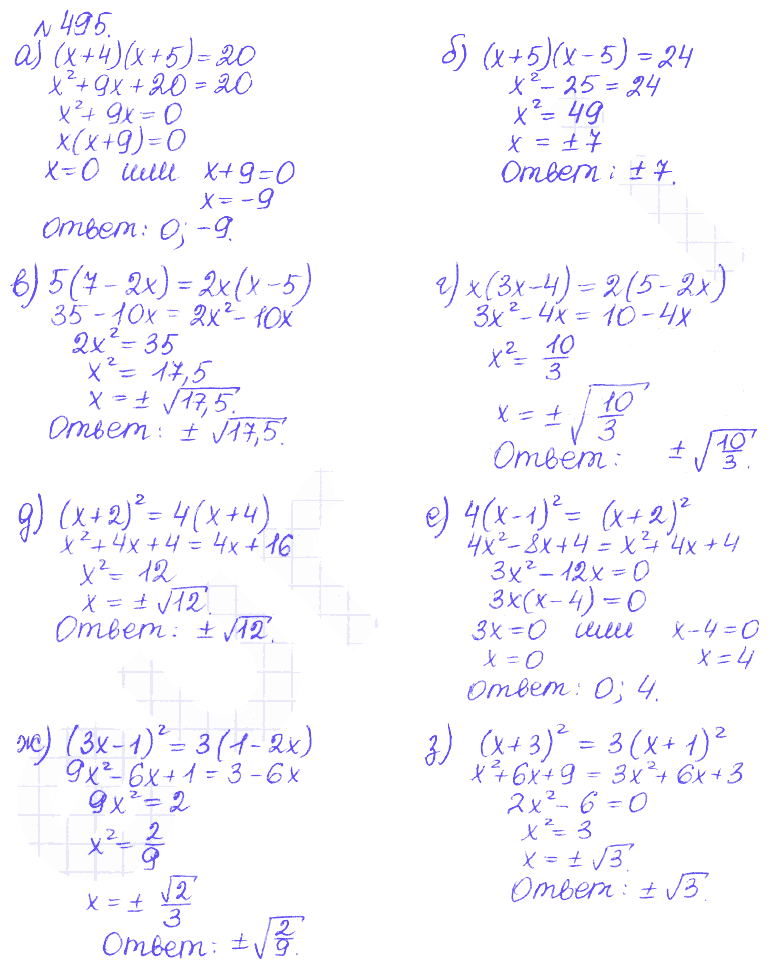 № 495.
а) (x+4)(x+5)=20
x²+9x+20=20
x²+9x=0
x(x+9)=0
x=0 или x+9=0
x=-9
Ответ: 0; -9.
б) (x+5)(x-5)=24
x²-25=24
x²=49
x=±7
Ответ: ±7.
в) 5(7-2x)=2x(x-5)
35-10x=2x²-10x
2x²=35
x²=17,5
x=±√17,5.
Ответ: ±√17,5.
г) x(3x-4)=2(5-2x)
3x²-4x=10-4x
x²=10/3
x=±√(10/3)
Ответ: ±√(10/3).
д) (x+2)²=4(x+4)
x²+4x+4=4x+16
x²=12
x=±√12.
Ответ: ±√12.
е) 4(x-1)²=(x+2)²
4x²-8x+4=x²+4x+4
3x²-12x=0
3x(x-4)=0
3x=0 или x-4=0
x=0 x=4
Ответ: 0; 4.
ж) (3x-1)²=3(1-2x)
9x²-6x+1=3-6x
9x²=2
x²=2/9
x=±√2/3
Ответ: ±√(2/9).
з) (x+3)²=3(x+1)²
x²+6x+9=3x²+6x+3
2x²-6=0
x²=3
x=±√3.
Ответ: ±√3.